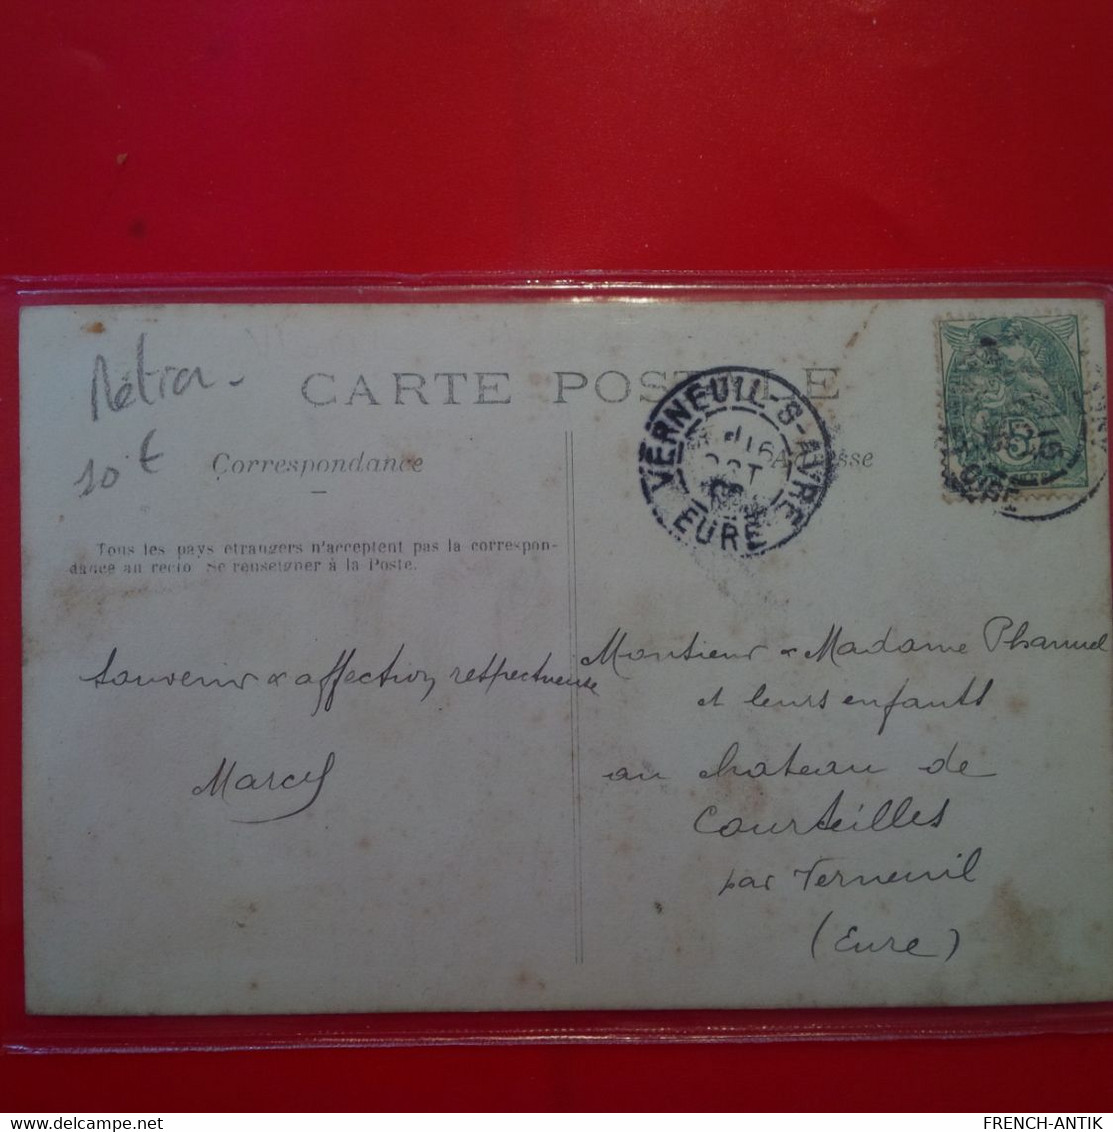 Métier -
10 €
CARTE POSTALE
Correspondance
Adresse
VERNEUIL-S-AVRE
16
OCT
EURE
5
16
OISE
Tous les pays étrangers n'acceptent pas la correspon-
dance au recto Se renseigner à la Poste.
Souvenir & affection respectueuse
Marcel
Monsieur & Madame Phanuel
et leurs enfants
au chateau de
Courteilles
par Verneuil
(Eure)
FRENCH-ANTIK